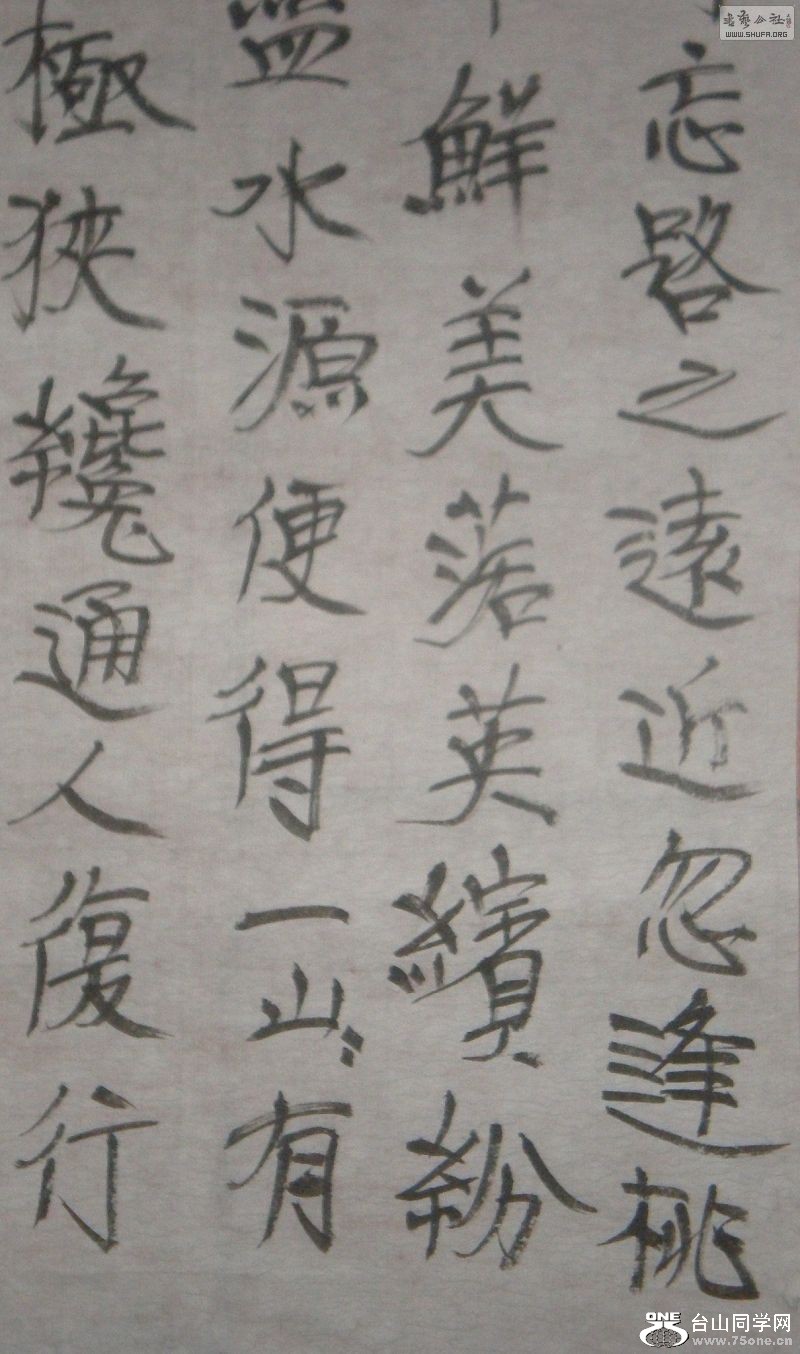 忘路之遠近忽逢桃
鮮美落英繽紛
盡水源便得一山〻有
極狹纔通人復行
書藝公社
WWW.SHUFA.ORG
ONE 台山同学网
www.75one.cn